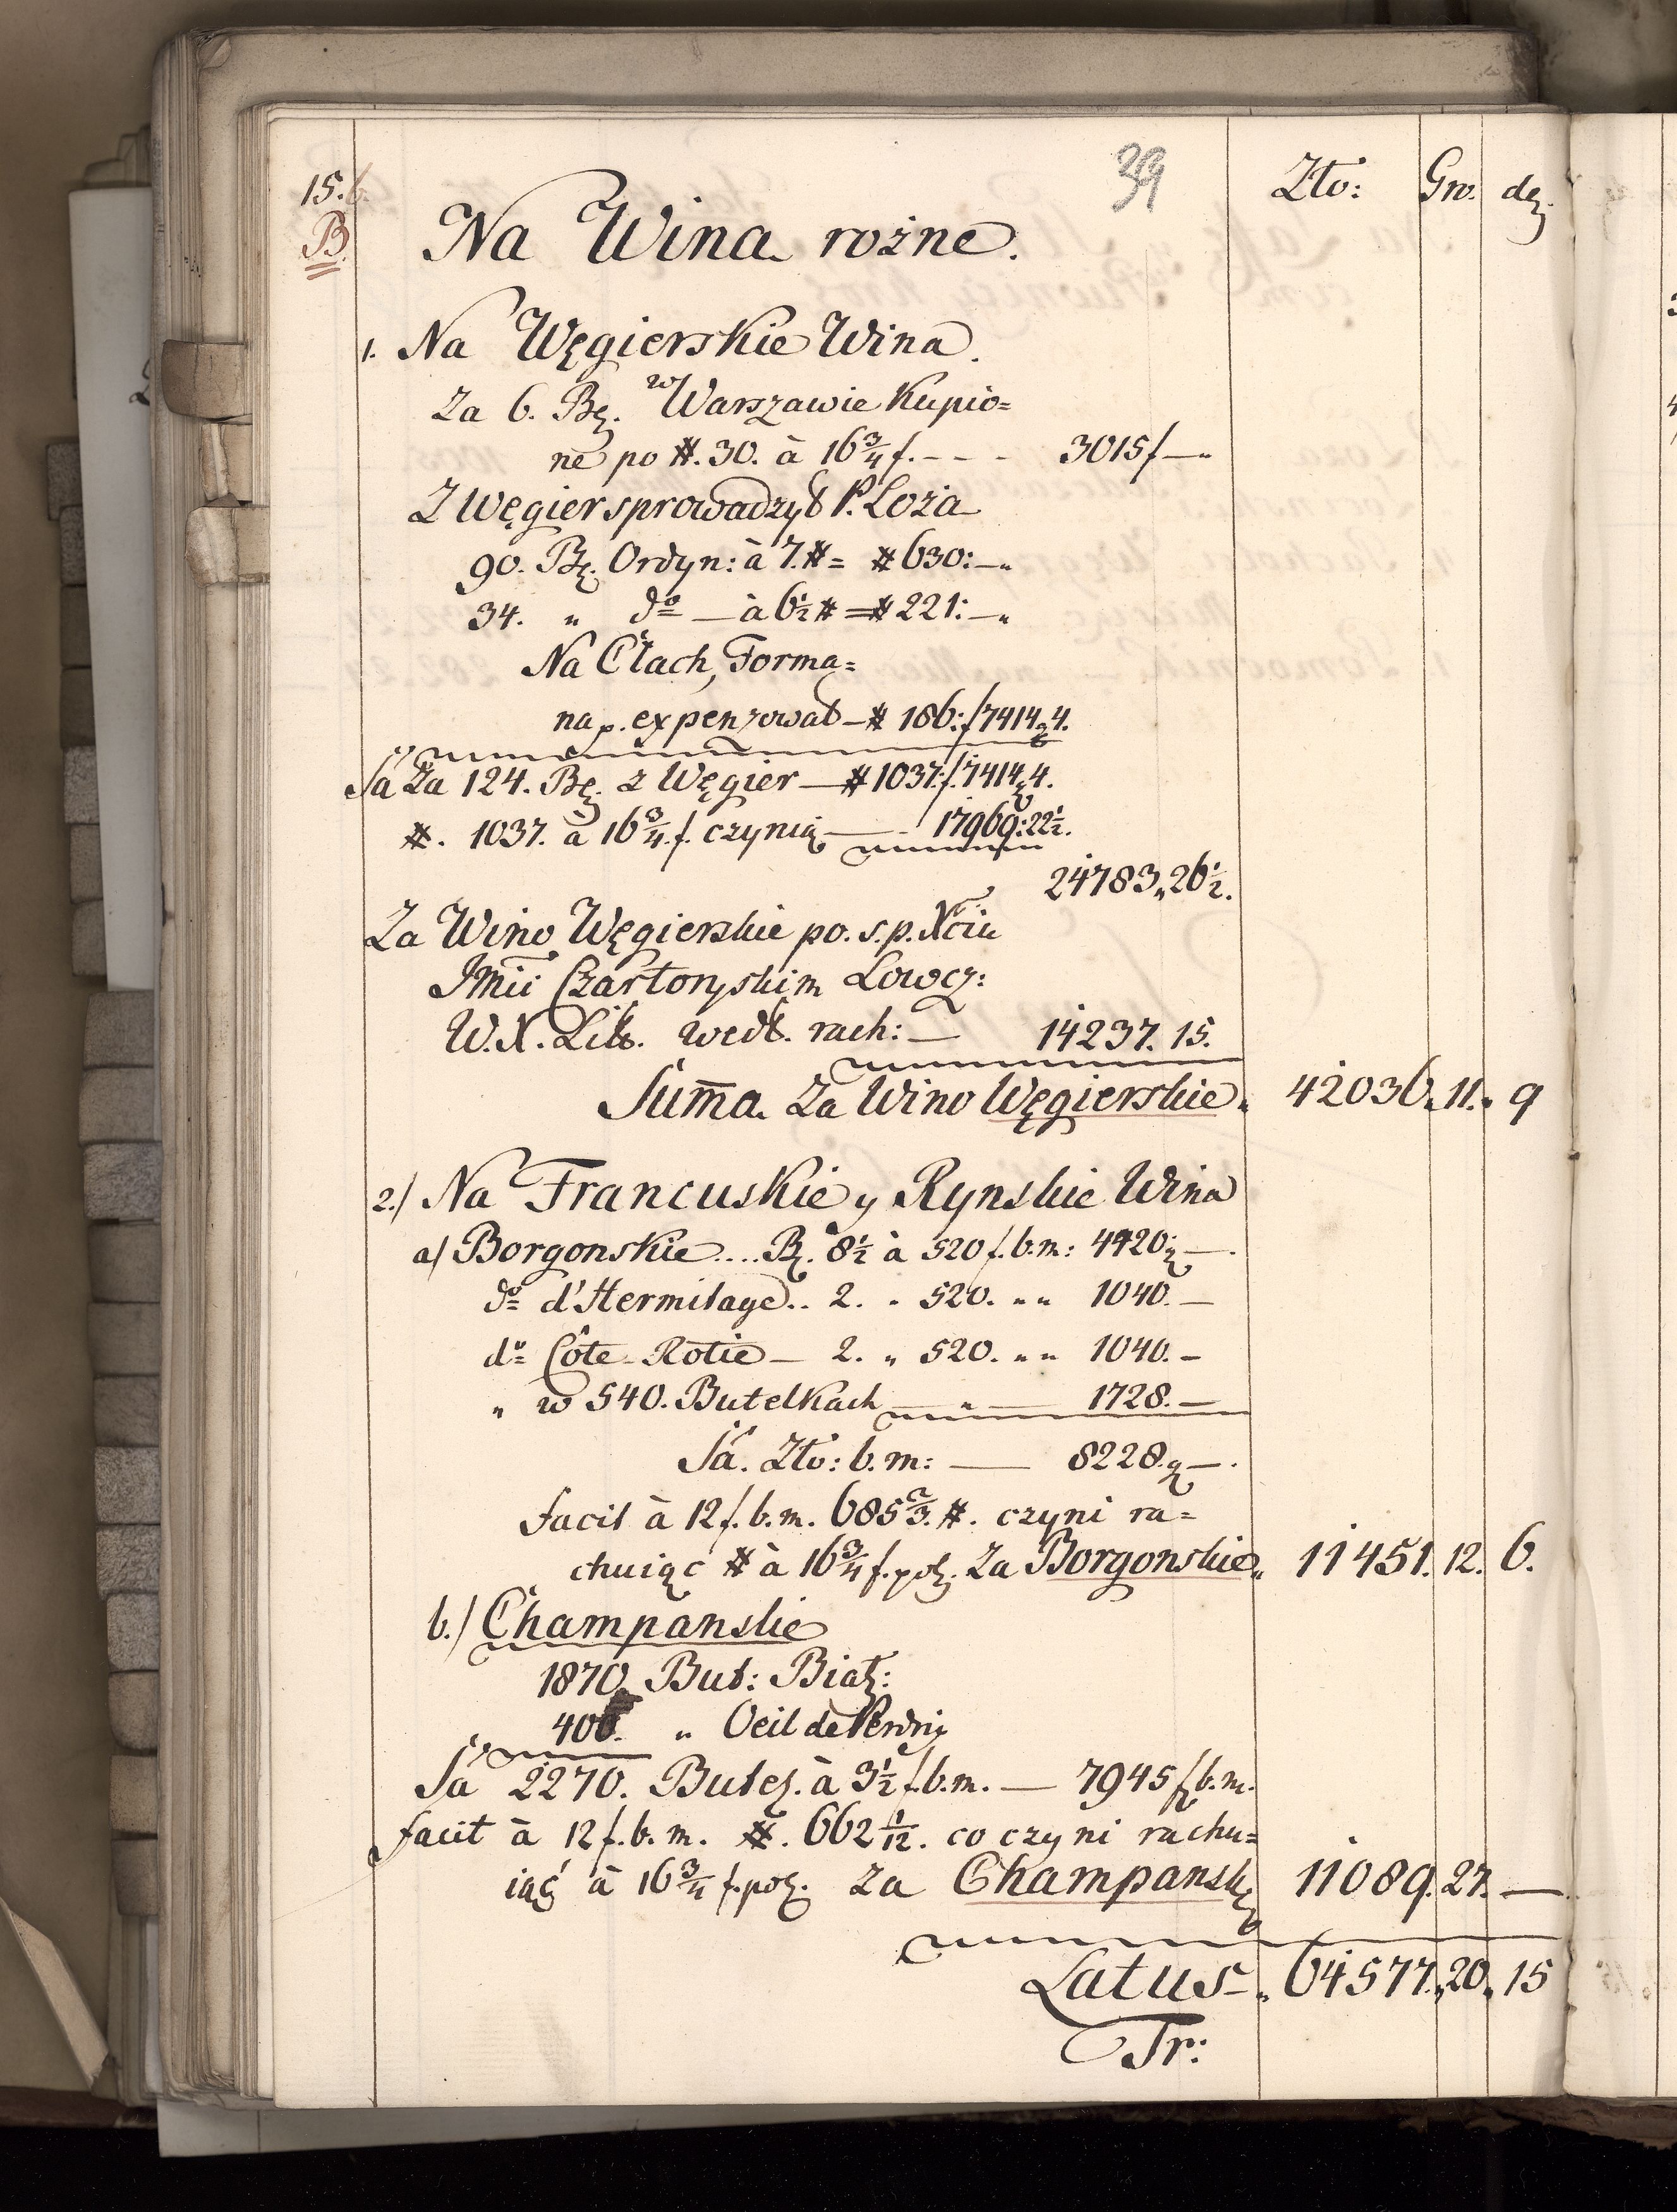 39
Zło: Gro. de.
15.b.
B.
Na Wina rożne.
1. Na Węgierskie Wina.
Za 6. Be. w Warszawie Kupio=
ne po #. 30. à 16 3/4 f. - - - 3015 f —"
Z Węgier sprowadzył P. Loża
90. Be. Ordyn: à 7. # = # 630: —"
34. " do — à 6 1/2 # = # 221: —"
Na Cłach, Forma=
na p. expensował — # 186: f 7414 g 4.
Sa Za 124. Be. z Węgier — # 1037: f. 7414 g 4.
#. 1037. à 16 3/4 f. czynią — 17969: 22 1/2.
24783 " 26 1/2.
Za Wino Węgierskie po. s. p. Xciu
Jmći Czartoryskim Łowcz:
W. X. Lit. wedł. rach: — 14237. 15.
Suma Za Wino Węgierskie " 42036 " 11. " 9
2./ Na Francuskie y Rynskie Wina
a/ Borgonskie .... Be. 8 1/2 à 520 f. b. m: 4420 g —.
do d'Hermitage .. 2. " 520. " " 1040. —
do Côte-Rotie — 2. " 520. " " 1040. —
" w 540. Butelkach — " — 1728. —
Sa. Zło: b. m: — 8228. g —.
facit à 12 f. b. m. 685 2/3. #. czyni ra=
chuiąc # à 16 3/4 f. pol. Za Borgonskie " 11451. 12. 6.
b./ Champanskie
1870 But: Biał:
400. " Oeil de Perdrix
Sa 2270. Butel. à 3 1/2 f. b. m. — 7945 f b. m.
facit à 12 f. b. m. #. 662 1/12. co czyni rachu=
iąc à 16 3/4 f. pol. Za Champansk. 11089. 27. —
Latus — " 64577. " 20 " 15
Tr: